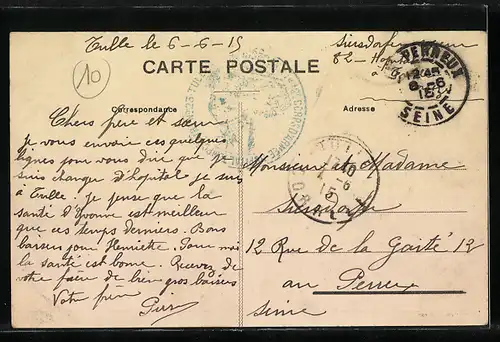 Tulle le 6-6-15
82
10
CARTE POSTALE
Correspondance
Adresse
PERREUX
12 45
8-6
15
SEINE
Chers père et sœur
Je vous envoire ces quelques
lignes pour vous dire que je
suis changé d'hôpital je suis
à Tulle. je pense que la
santé d'Yvonne est meilleur
que ces temps derniers. Bons
baisers pour Henriette. Pour moi
la santé est bonne. Recevez de
votre frère de bien gros baisers
Votre frère
Monsieur et Madame
12 Rue de la Gaité 12
au Perreux
Seine